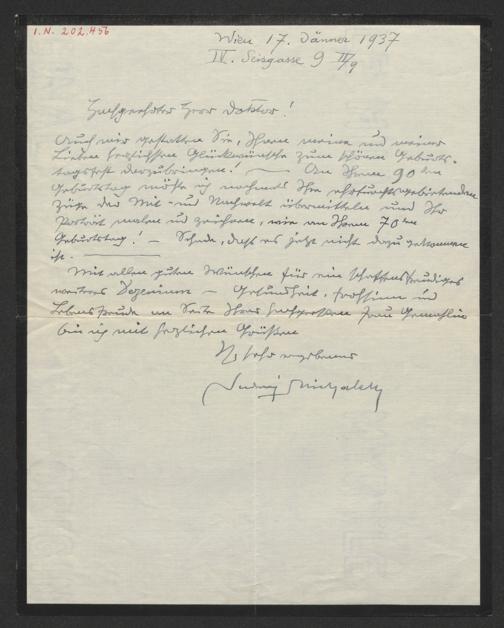 I.N. 202.456
Wien 17. Jänner 1937
IV. Seisgasse 9 II/9
Hochgeehrter Herr Doktor!
Auch mir gestatten Sie, Ihnen meine und meiner
Lieben herzlichsten Glückwünsche zum schönen Geburts-
tagsfest darzubringen! — An Ihrem 90ten
Geburtstag möchte ich nochmals Ihre ehrfurchtgebietenden
Züge der Mit- und Nachwelt übermitteln und Ihr
Porträt malen und zeichnen, wie an Ihrem 70ten
Geburtstag! — Schade, daß es jetzt nicht dazu gekommen
ist. —
Mit allen guten Wünschen für ein schaffensfreudiges
weiteres Dezennium — Gesundheit, Frohsinn und
Lebensfreude an Seite Ihrer hochgeehrten Frau Gemahlin
bin ich mit herzlichen Grüßen
Ihr sehr ergebener
Ludwig Michalek